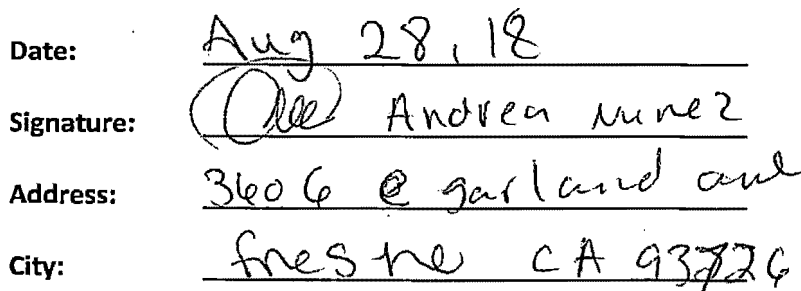 Date: Aug 28, 18
Signature: Andrea Nunez
Address: 3606 e garland ave
City: fresno CA 93726